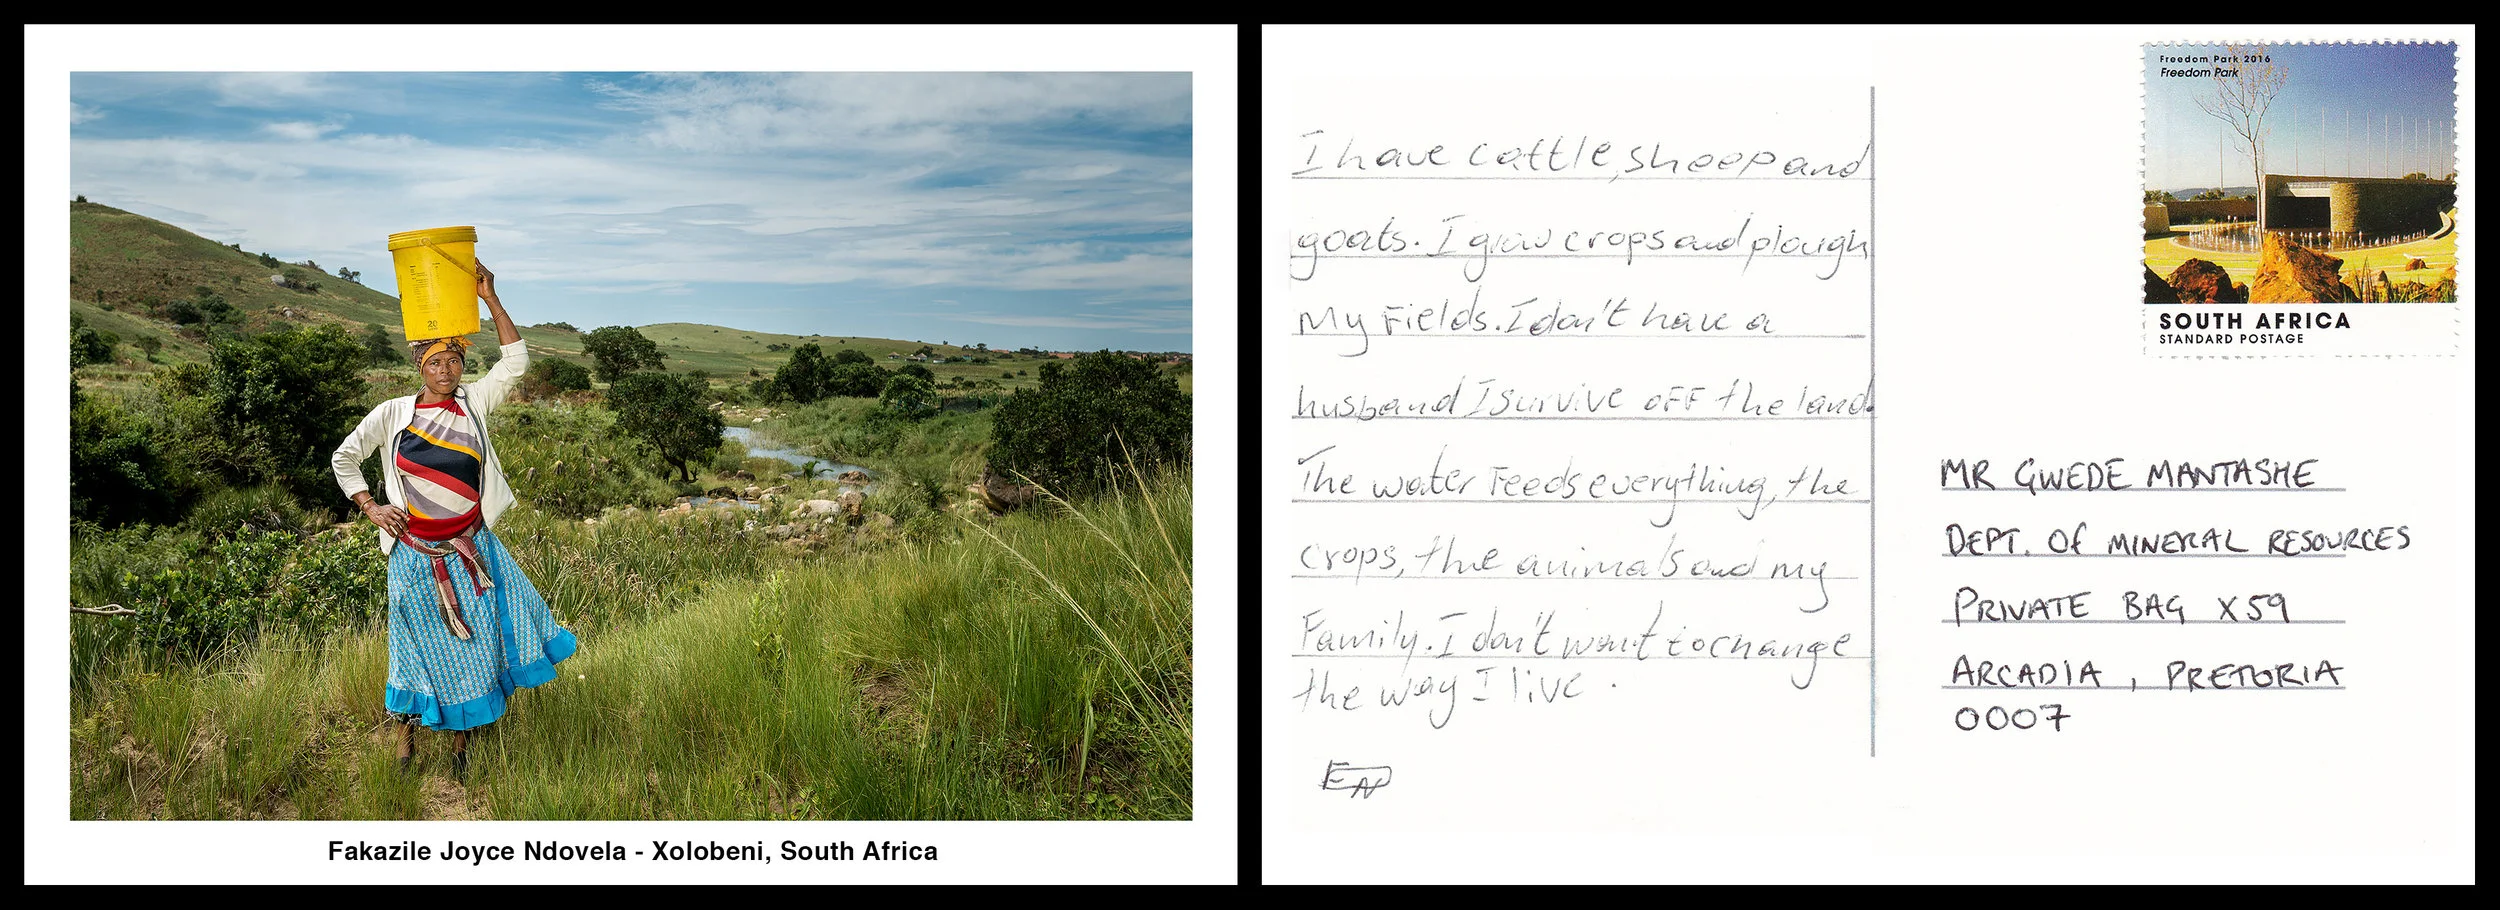 20
Fakazile Joyce Ndovela - Xolobeni, South Africa
I have cattle, sheep and
goats. I grow crops and plough
My Fields. I don't have a
husband I survive oFF the land.
The water Feeds everything, the
crops, the animals and my
Family. I don't want to change
the way I live.
FN
Freedom Park 2016
Freedom Park
SOUTH AFRICA
STANDARD POSTAGE
MR GWEDE MANTASHE
DEPT. OF MINERAL RESOURCES
PRIVATE BAG X59
ARCADIA, PRETORIA
0007